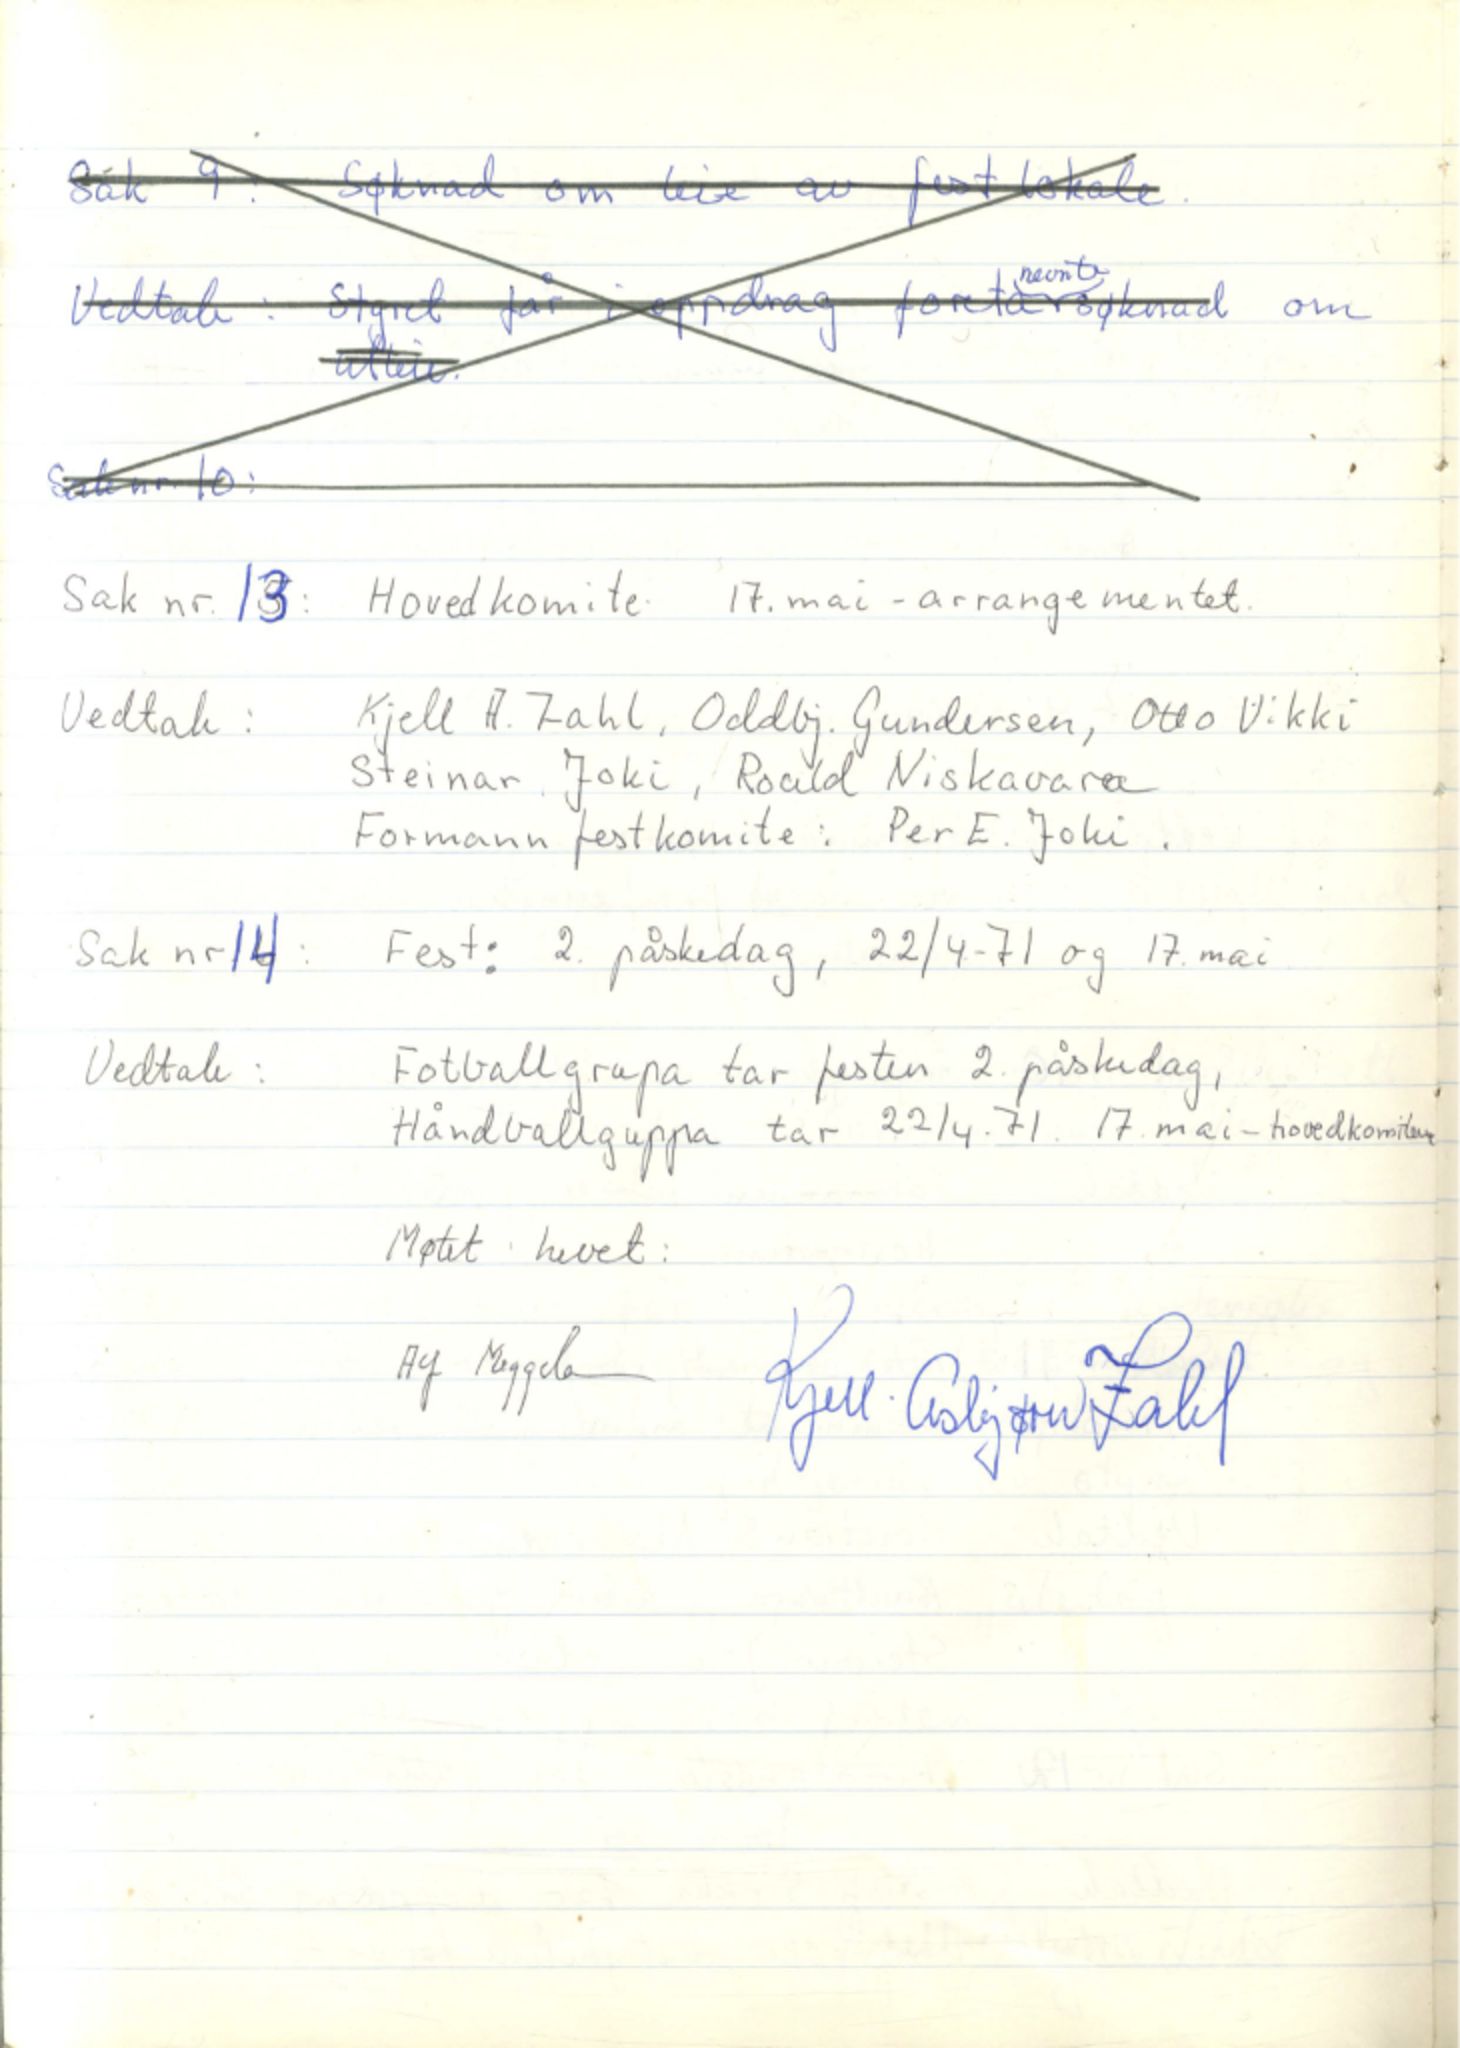 Sak 9: Søknad om leie av festlokale.
Vedtak: Styret får i oppdrag foreta nevnte søknad om
utleie.
Sak nr. 10:
Sak nr. 13: Hovedkomite 17. mai - arrangementet.
Vedtak: Kjell A. Zahl, Oddbj. Gundersen, Otto Vikki
Steinar Joki, Roald Niskavara
Formann festkomite: Per E. Joki.
Sak nr 14: Fest: 2. påskedag, 22/4-71 og 17. mai
Vedtak: Fotballgrupa tar festen 2. påskedag,
Håndballguppa tar 22/4-71. 17. mai - hovedkomiteen
Møtet hevet:
Kjell Asbjørn Zahl